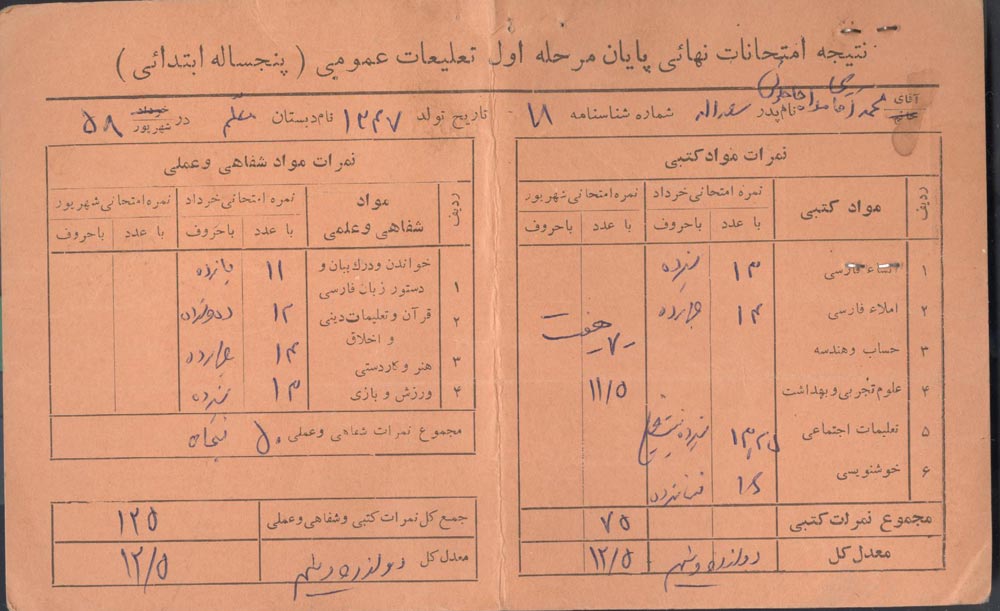 نتیجه امتحانات نهائی پایان مرحله اول تعلیمات عمومی ( پنجساله ابتدائی )
آقای خانم محمد نام پدر شماره شناسنامه ۷۱ تاریخ تولد ۱۳۴۷ نام دبستان معلم در خرداد شهریور ۵۸
نمرات مواد کتبی
ردیف مواد کتبی نمره امتحانی خرداد نمره امتحانی شهریور
با عدد باحروف با عدد باحروف
۱ انشاء فارسی ۱۳ سیزده
۲ املاء فارسی ۱۴ چهارده
۳ حساب وهندسه ۷ هفت
۴ علوم تجربی و بهداشت ۱۱/۵
۵ تعلیمات اجتماعی ۱۳٫۲۵
۶ خوشنویسی ۱۶ شانزده
مجموع نمرات کتبی ۷۵
معدل کل ۱۲/۵
نمرات مواد شفاهی وعملی
ردیف مواد شفاهی وعلمی نمره امتحانی خرداد نمره امتحانی شهریور
با عدد باحروف با عدد باحروف
۱ خواندن ودرک بیان و دستور زبان فارسی ۱۱ یازده
۲ قرآن و تعلیمات دینی و اخلاق ۱۲ دوازده
۳ هنر و کاردستی ۱۴ چهارده
۴ ورزش و بازی ۱۳ سیزده
مجموع نمرات شفاهی وعملی ۵۰ پنجاه
جمع کل نمرات کتبی وشفاهی وعملی ۱۲۵
معدل کل دوازده ونیم ۱۲/۵